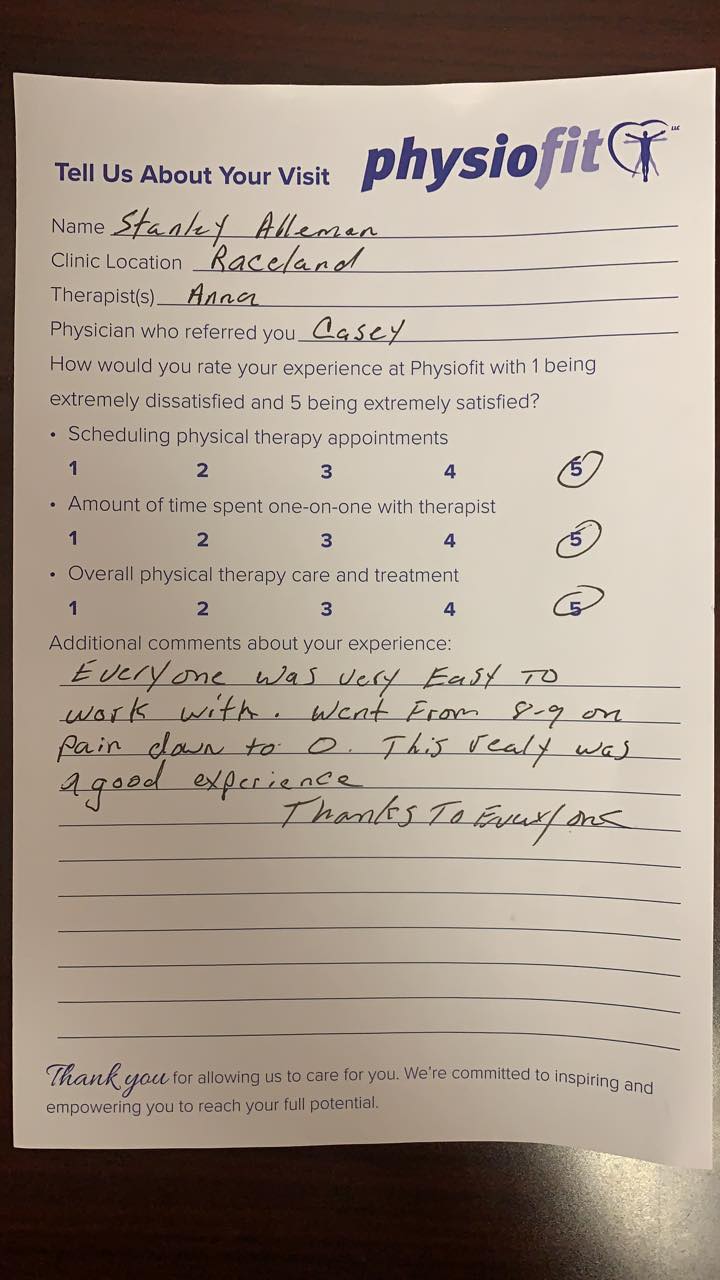 Tell Us About Your Visit physiofit LLC
Name Stanley Alleman
Clinic Location Raceland
Therapist(s) Anna
Physician who referred you Casey
How would you rate your experience at Physiofit with 1 being
extremely dissatisfied and 5 being extremely satisfied?
• Scheduling physical therapy appointments
1 2 3 4 5
• Amount of time spent one-on-one with therapist
1 2 3 4 5
• Overall physical therapy care and treatment
1 2 3 4 5
Additional comments about your experience:
Everyone was very Easy To
work with. Went From 8-9 on
pain down to 0. This realy was
a good experience
Thanks To Everyone
Thank you for allowing us to care for you. We're committed to inspiring and
empowering you to reach your full potential.